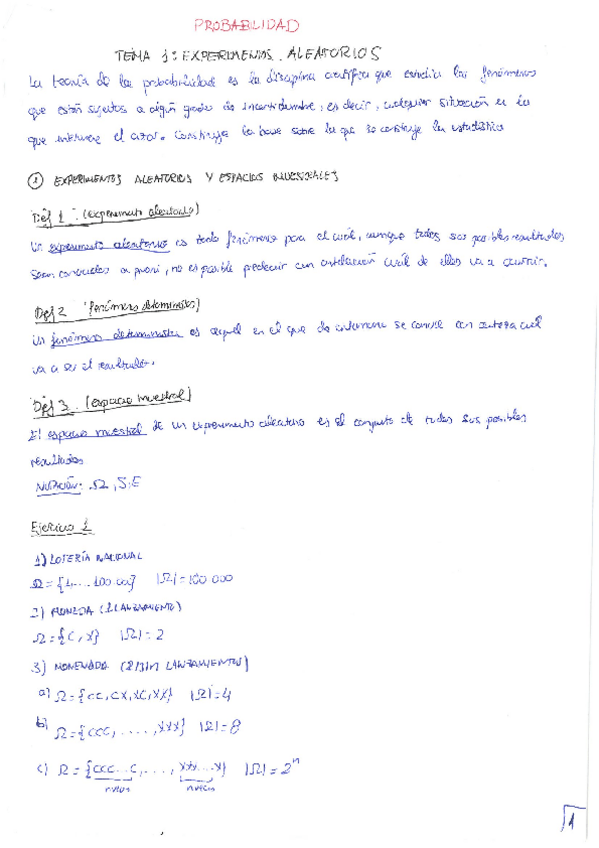 PROBABILIDAD
TEMA 1: EXPERIMENTOS ALEATORIOS
La teoría de la probabilidad es la disciplina científica que estudia los fenómenos
que están sujetos a algún grado de incertidumbre, es decir, cualquier situación en la
que interviene el azar. Construye la base sobre la que se construye la estadística
① EXPERIMENTOS ALEATORIOS Y ESPACIOS MUESTRALES
Def 1: (experimento aleatorio)
Un experimento aleatorio es todo fenómeno para el cual, aunque todos sus posibles resultados
sean conocidos a priori, no es posible predecir con antelación cuál de ellos va a ocurrir.
Def 2 (fenómeno determinista)
Un fenómeno determinista es aquel en el que de antemano se conoce con certeza cuál
va a ser el resultado.
Def 3. (espacio muestral)
El espacio muestral de un experimento aleatorio es el conjunto de todos sus posibles
resultados
Notación: Ω, S, E
Ejercicio 1
1) LOTERÍA NACIONAL
Ω = {1, ... 100.000} |Ω| = 100 000
2) MONEDA (1 LANZAMIENTO)
Ω = {C, X} |Ω| = 2
3) MONEDA (2/3/n LANZAMIENTOS)
a) Ω = {CC, CX, XC, XX} |Ω| = 4
b) Ω = {CCC, ....., XXX} |Ω| = 8
c) Ω = {CCC...C, ...., XXX...X} |Ω| = 2ⁿ
n veces n veces
1